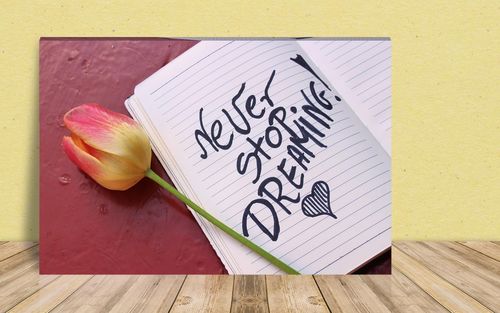 NEVER
STOP
DREAMING!